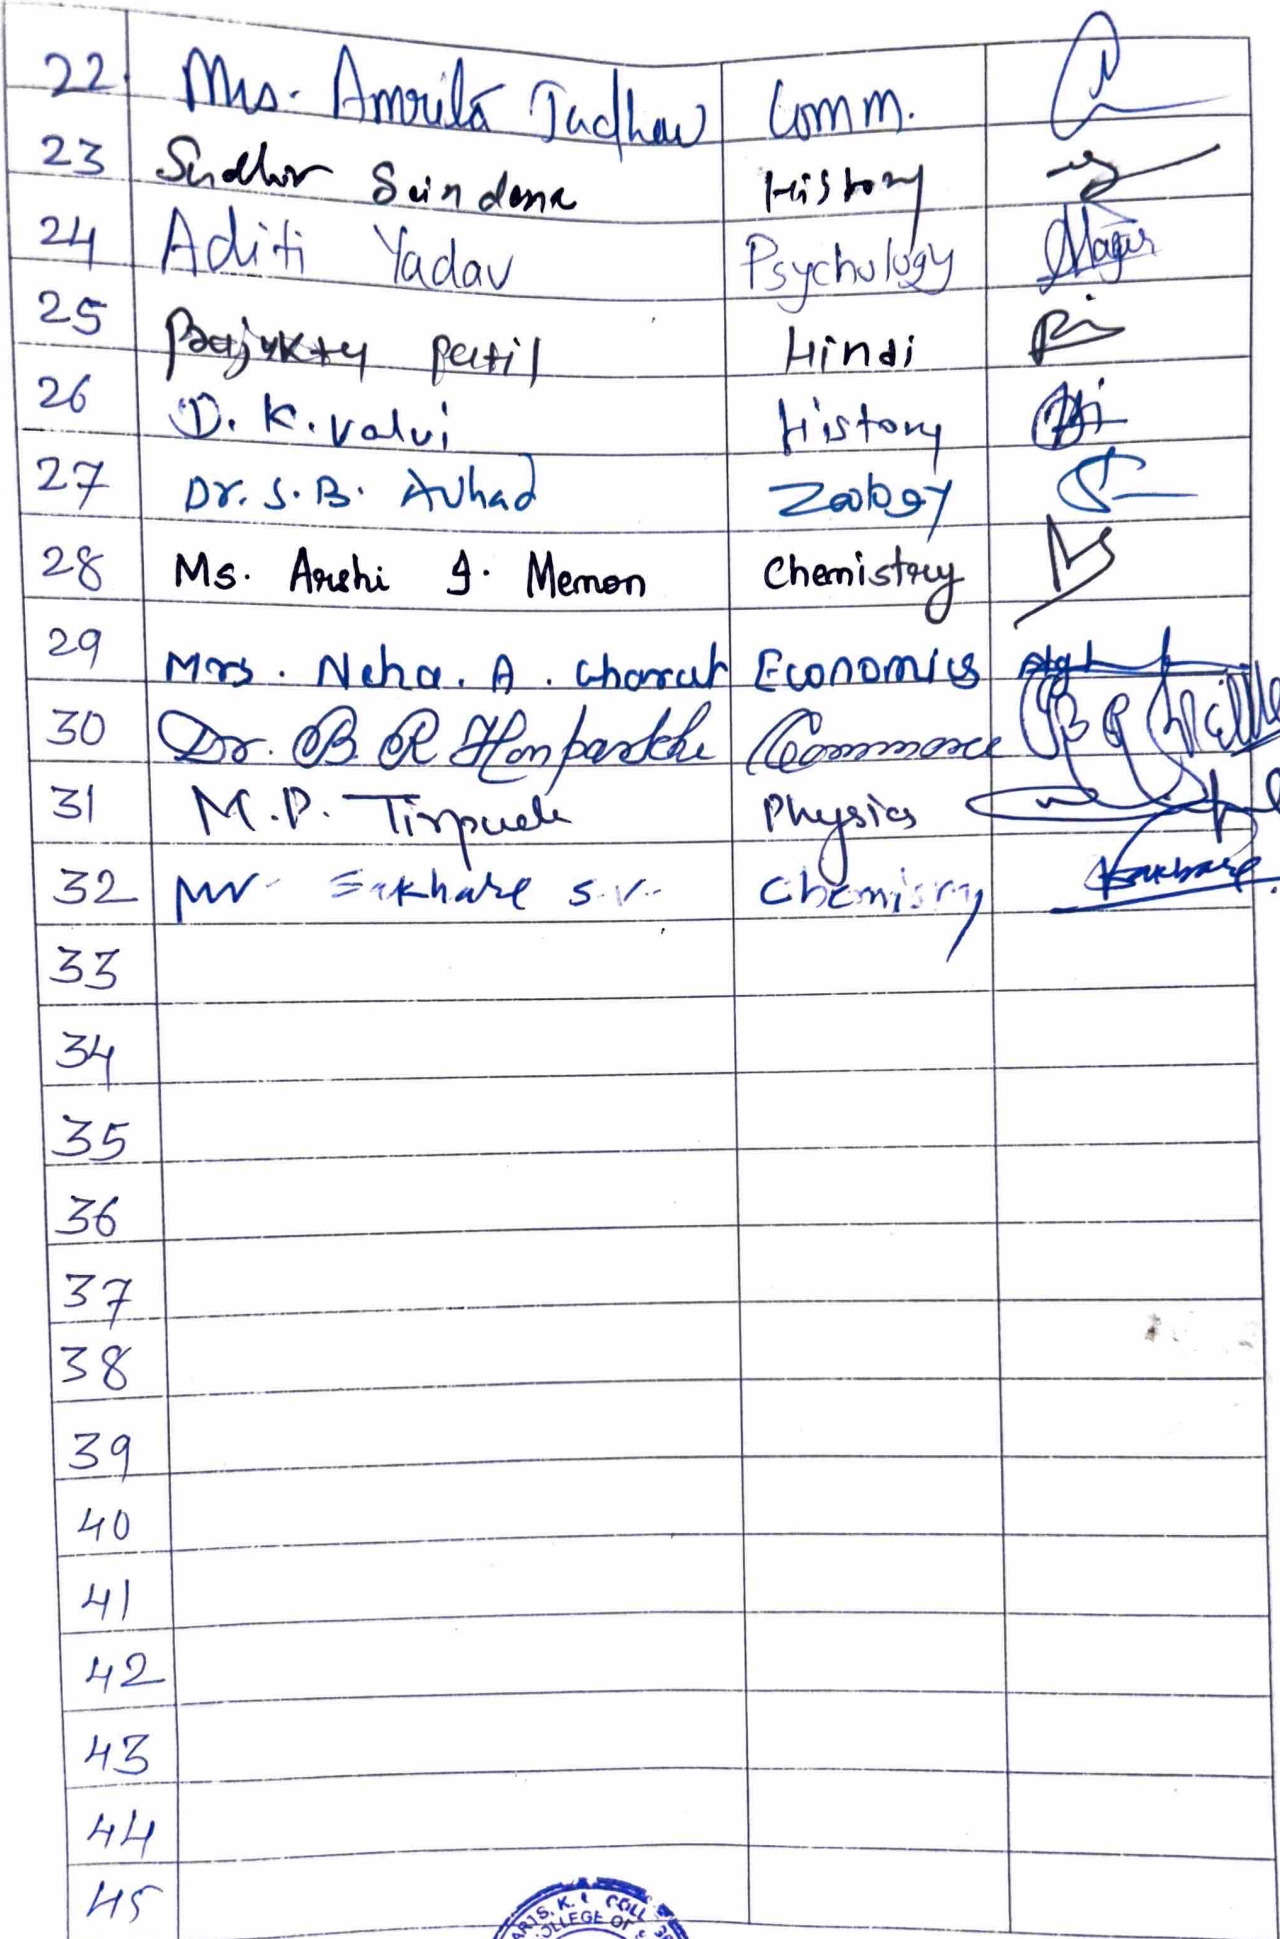 22. Mrs. Amrita Jadhav Comm.
23 Sudhir History
24 Aditi Yadav Psychology
25 Prajukty Patil Hindi
26 D. K. Valvi History
27 Dr. S. B. Avhad Zoology
28 Ms. Arshi I. Memon Chemistry
29 Mrs. Neha. A. Gharat Economics
30 Dr. B. R Commerce
31 M.P. Tirpude Physics
32 Mr Sakhare S.V. Chemisry Sakhare
33
34
35
36
37
38
39
40
41
42
43
44
45
ARTS, K. COLL
COLLEGE OF